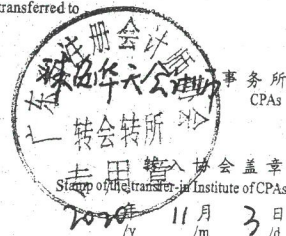 transferred to
广东省注册会计师协会
事务所
CPAs
转会转所
专用章
转入协会盖章
Stamp of the transfer-in Institute of CPAs
2020年 11月 3日
/y /m /d